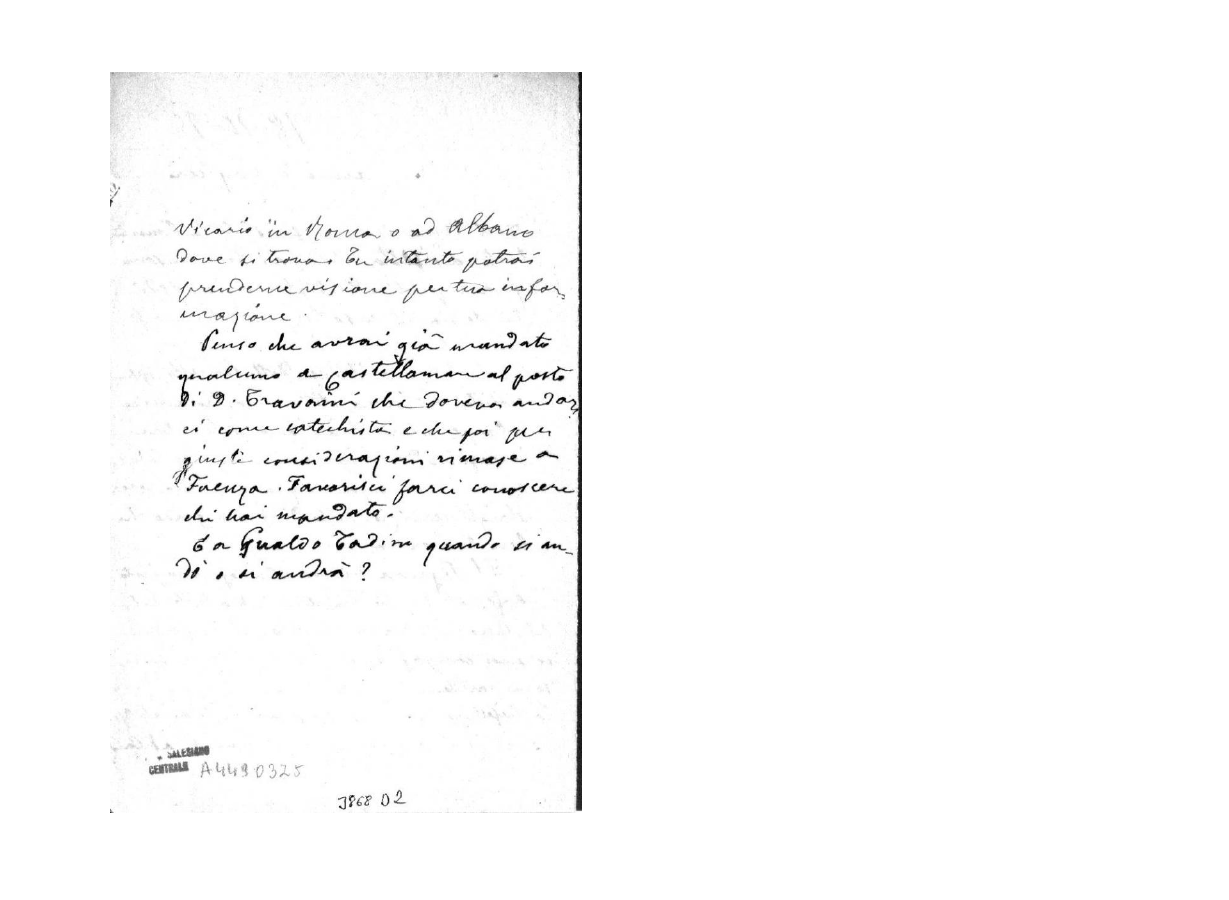 Vicario in Roma o ad Albano
dove si trova. Tu intanto potrai
prenderne visione per tua infor_
mazione.
Penso che avrai già mandato
qualcuno a Castellamare al posto
di D. Travaini che doveva andar_
ci come catechista e che poi per
giuste considerazioni rimase a
Faenza. Favorisci farci conoscere
chi hai mandato.
E a Gualdo Tadino quando si an_
dò o si andrà?
SALESIANO
CENTRALE A4490325
3868 D2